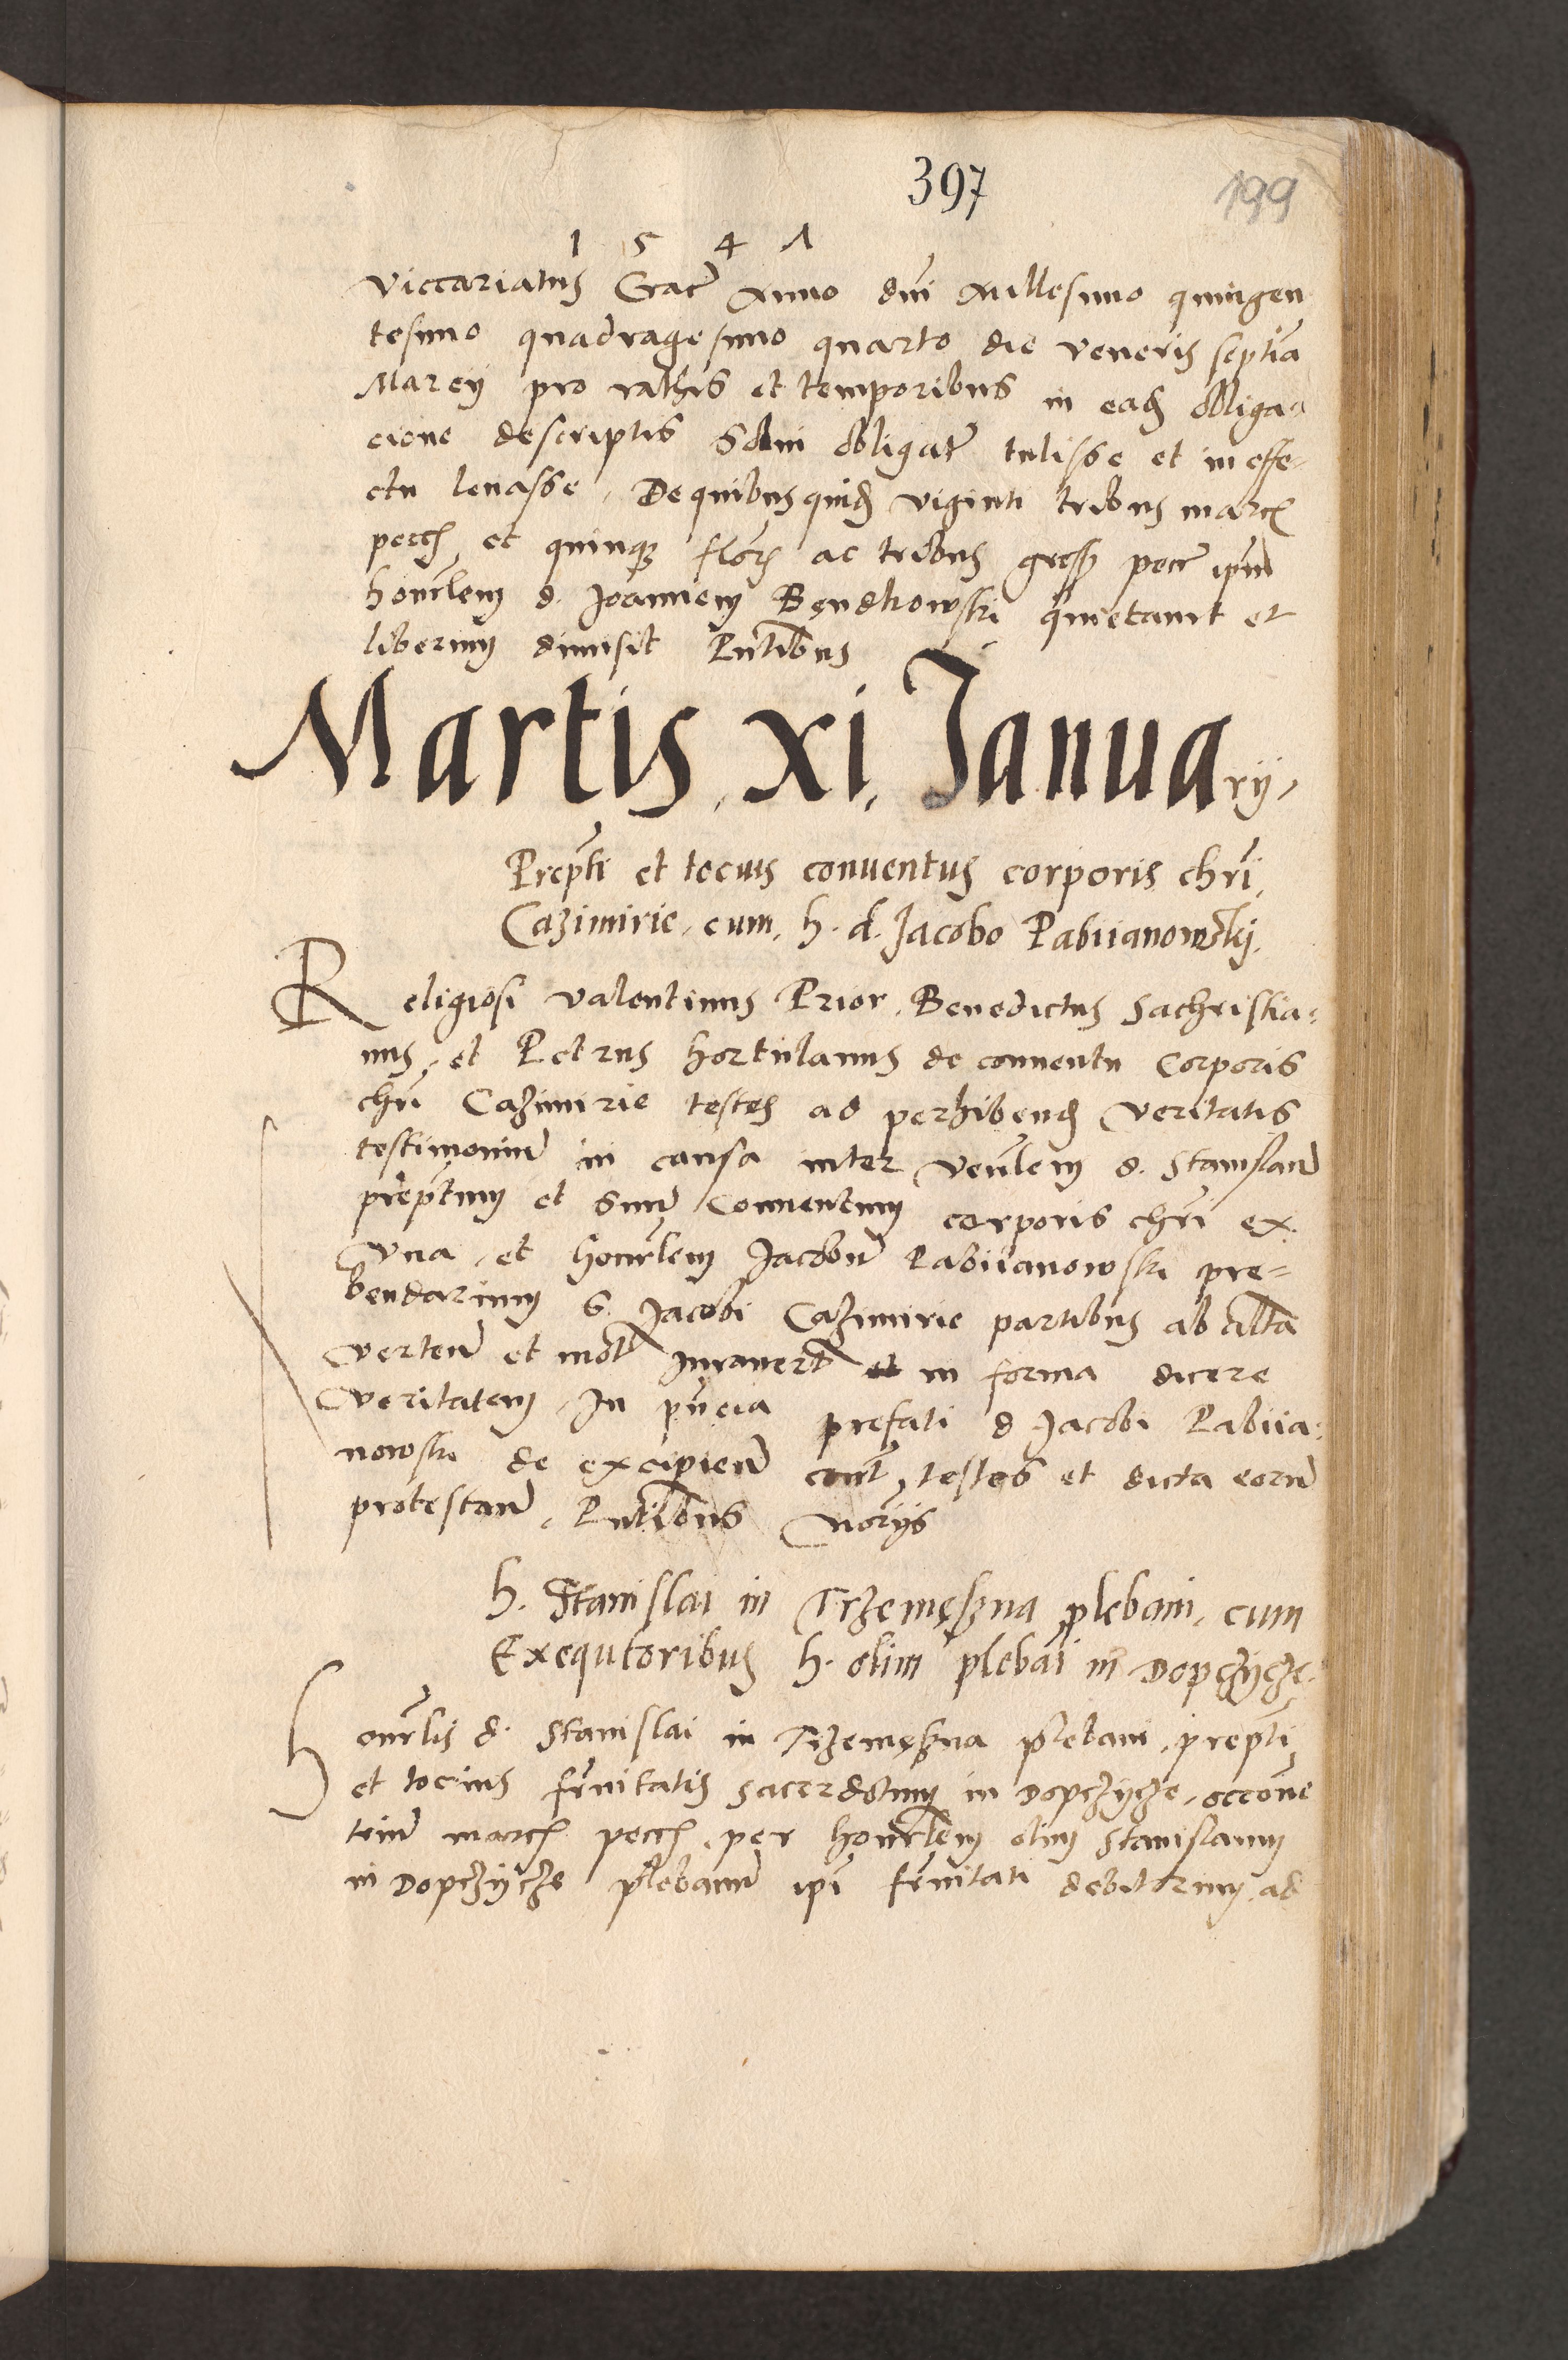 397
199
1 5 4 1
viccariatus Crac Anno dni Millesimo quingen
tesimo quadragesimo quarto die veneris septia
Marcy pro rathis et temporibus in eade obliga=
cione descriptis Solui obligat tulisse et in effe=
ctu leuasse, De quibusquid viginti tribus marc
pecc et quinq flor ac tribus gross pecc ipm
honrlem d. Joannem Bendkowski quietauit et
liberum dimisit Pntibus
Martis, xi, Januarij,
Prepti et tocius conuentus corporis chri,
Cazimirie, cum, h. d. Jacobo Pabiianowskj,
Religiosi valentinus Prior, Benedictus Sachristia=
nus, et Petrus hortulanus de conuentu Corporis
chri Cazimirie testes ad perhibend veritatis
testimoniu in causa inter venlem d. Stanislau
preptum et Suu Conuentum corporis chri ex
Vna, et honrlem Jacobu Pabiianowski pre=
bendarium S. Jacobi Cazimirie partibus ab altra
verten et mot Jurauert in forma dicere
veritatem, In pncia prefati d Jacobi Pabiia=
nowski de excipien cont, testes et dicta eoru
protestan, Pntibus Norijs
h. Stanislai in Trzemeszna plebani, cum
Exequtoribus h. olim plebai in Dopczycze,
honrlis d. Stanislai in Trzemeszna plebani, prepti
et tocius frnitatis sacerdotum in Dopczycze, occone
triu march pecch, per honrlem olim Stanislaum
in Dopczycze plebanu ipi frnitati debitorum, ad